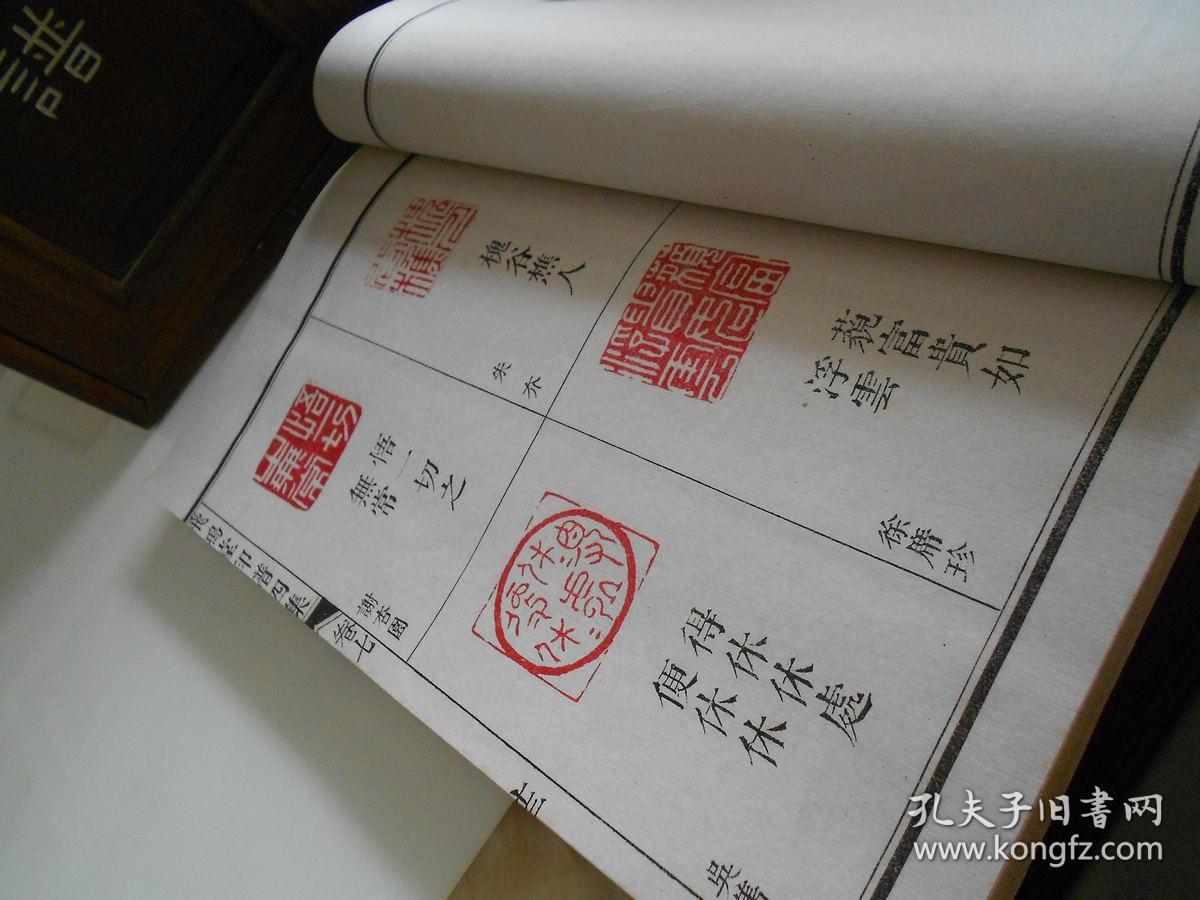 譜
藐富貴如
浮雲
徐席珍
得休休處
便休休
吳
槐谷樵人
朱
悟一切之
無常
謝杏園
飛鴻堂印譜四集
卷七
孔夫子旧書网
www.kongfz.com